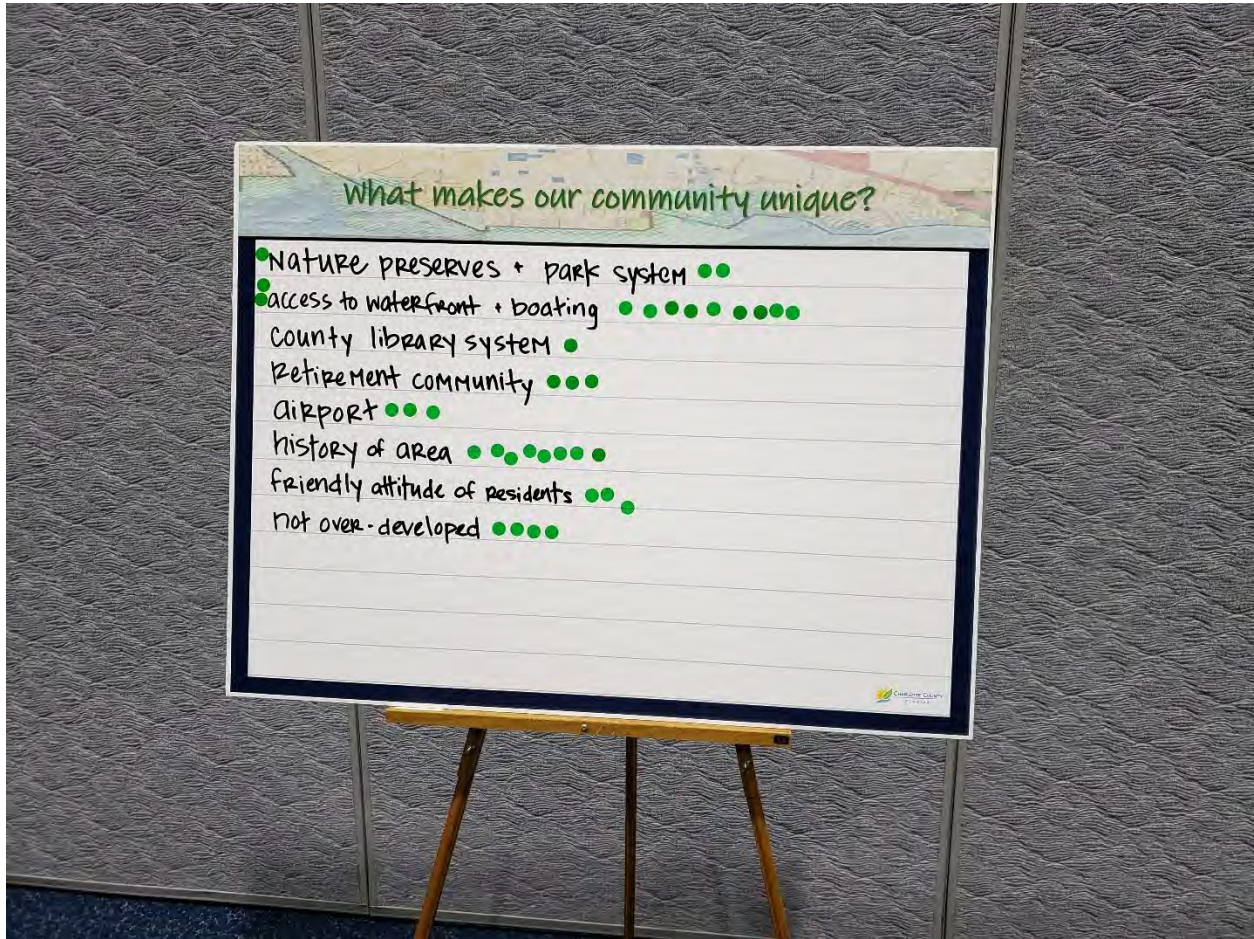 What makes our community unique?
Nature preserves + park system
access to waterfront + boating
county library system
Retirement community
airport
history of area
friendly attitude of residents
not over-developed
Charlotte County
FLORIDA